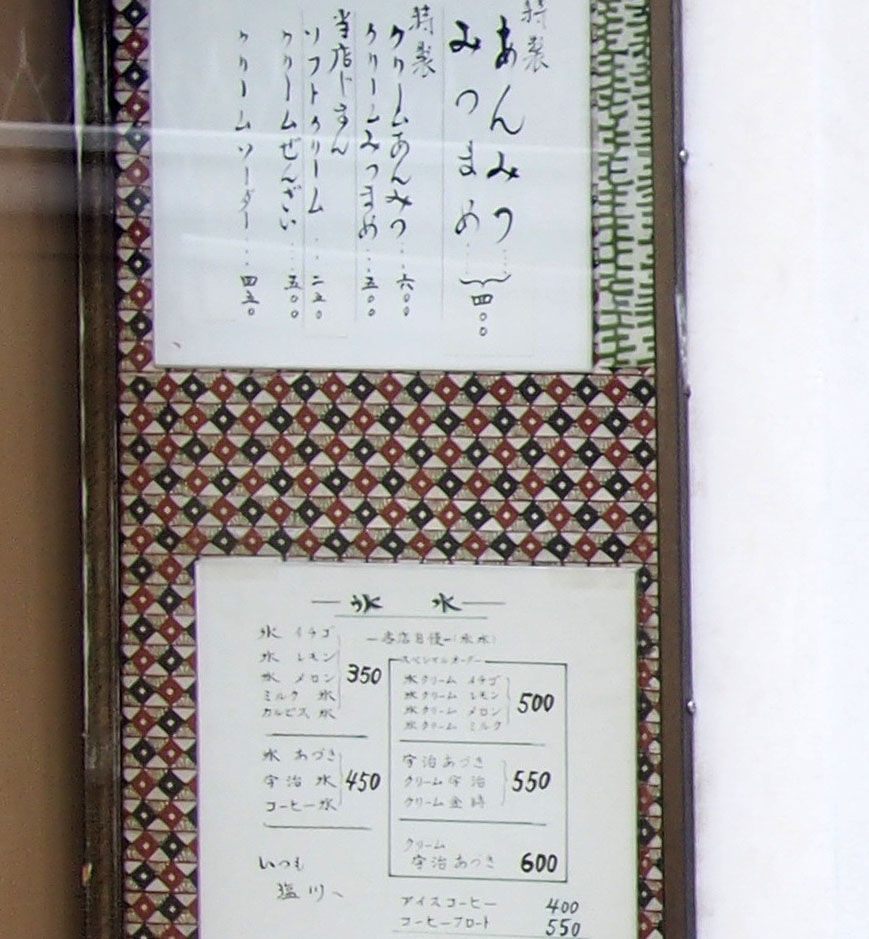 特製
あんみつ
みつまめ……四〇〇
特製
クリームあんみつ…六〇〇
クリームみつまめ…五〇〇
当店じまん
ソフトクリーム…二五〇
クリームぜんざい…五〇〇
クリームソーダー…四五〇
氷 水
氷 イチゴ
氷 レモン
氷 メロン
ミルク 氷
カルピス 氷
350
氷 あづき
宇治 氷
コーヒー氷
450
いつも
当店自慢(氷水)
スペシャルオーダー
氷クリーム イチゴ
氷クリーム レモン
氷クリーム メロン
氷クリーム ミルク
500
宇治あづき
クリーム宇治
クリーム金時
550
クリーム
宇治あづき 600
アイスコーヒー 400
コーヒーフロート 550